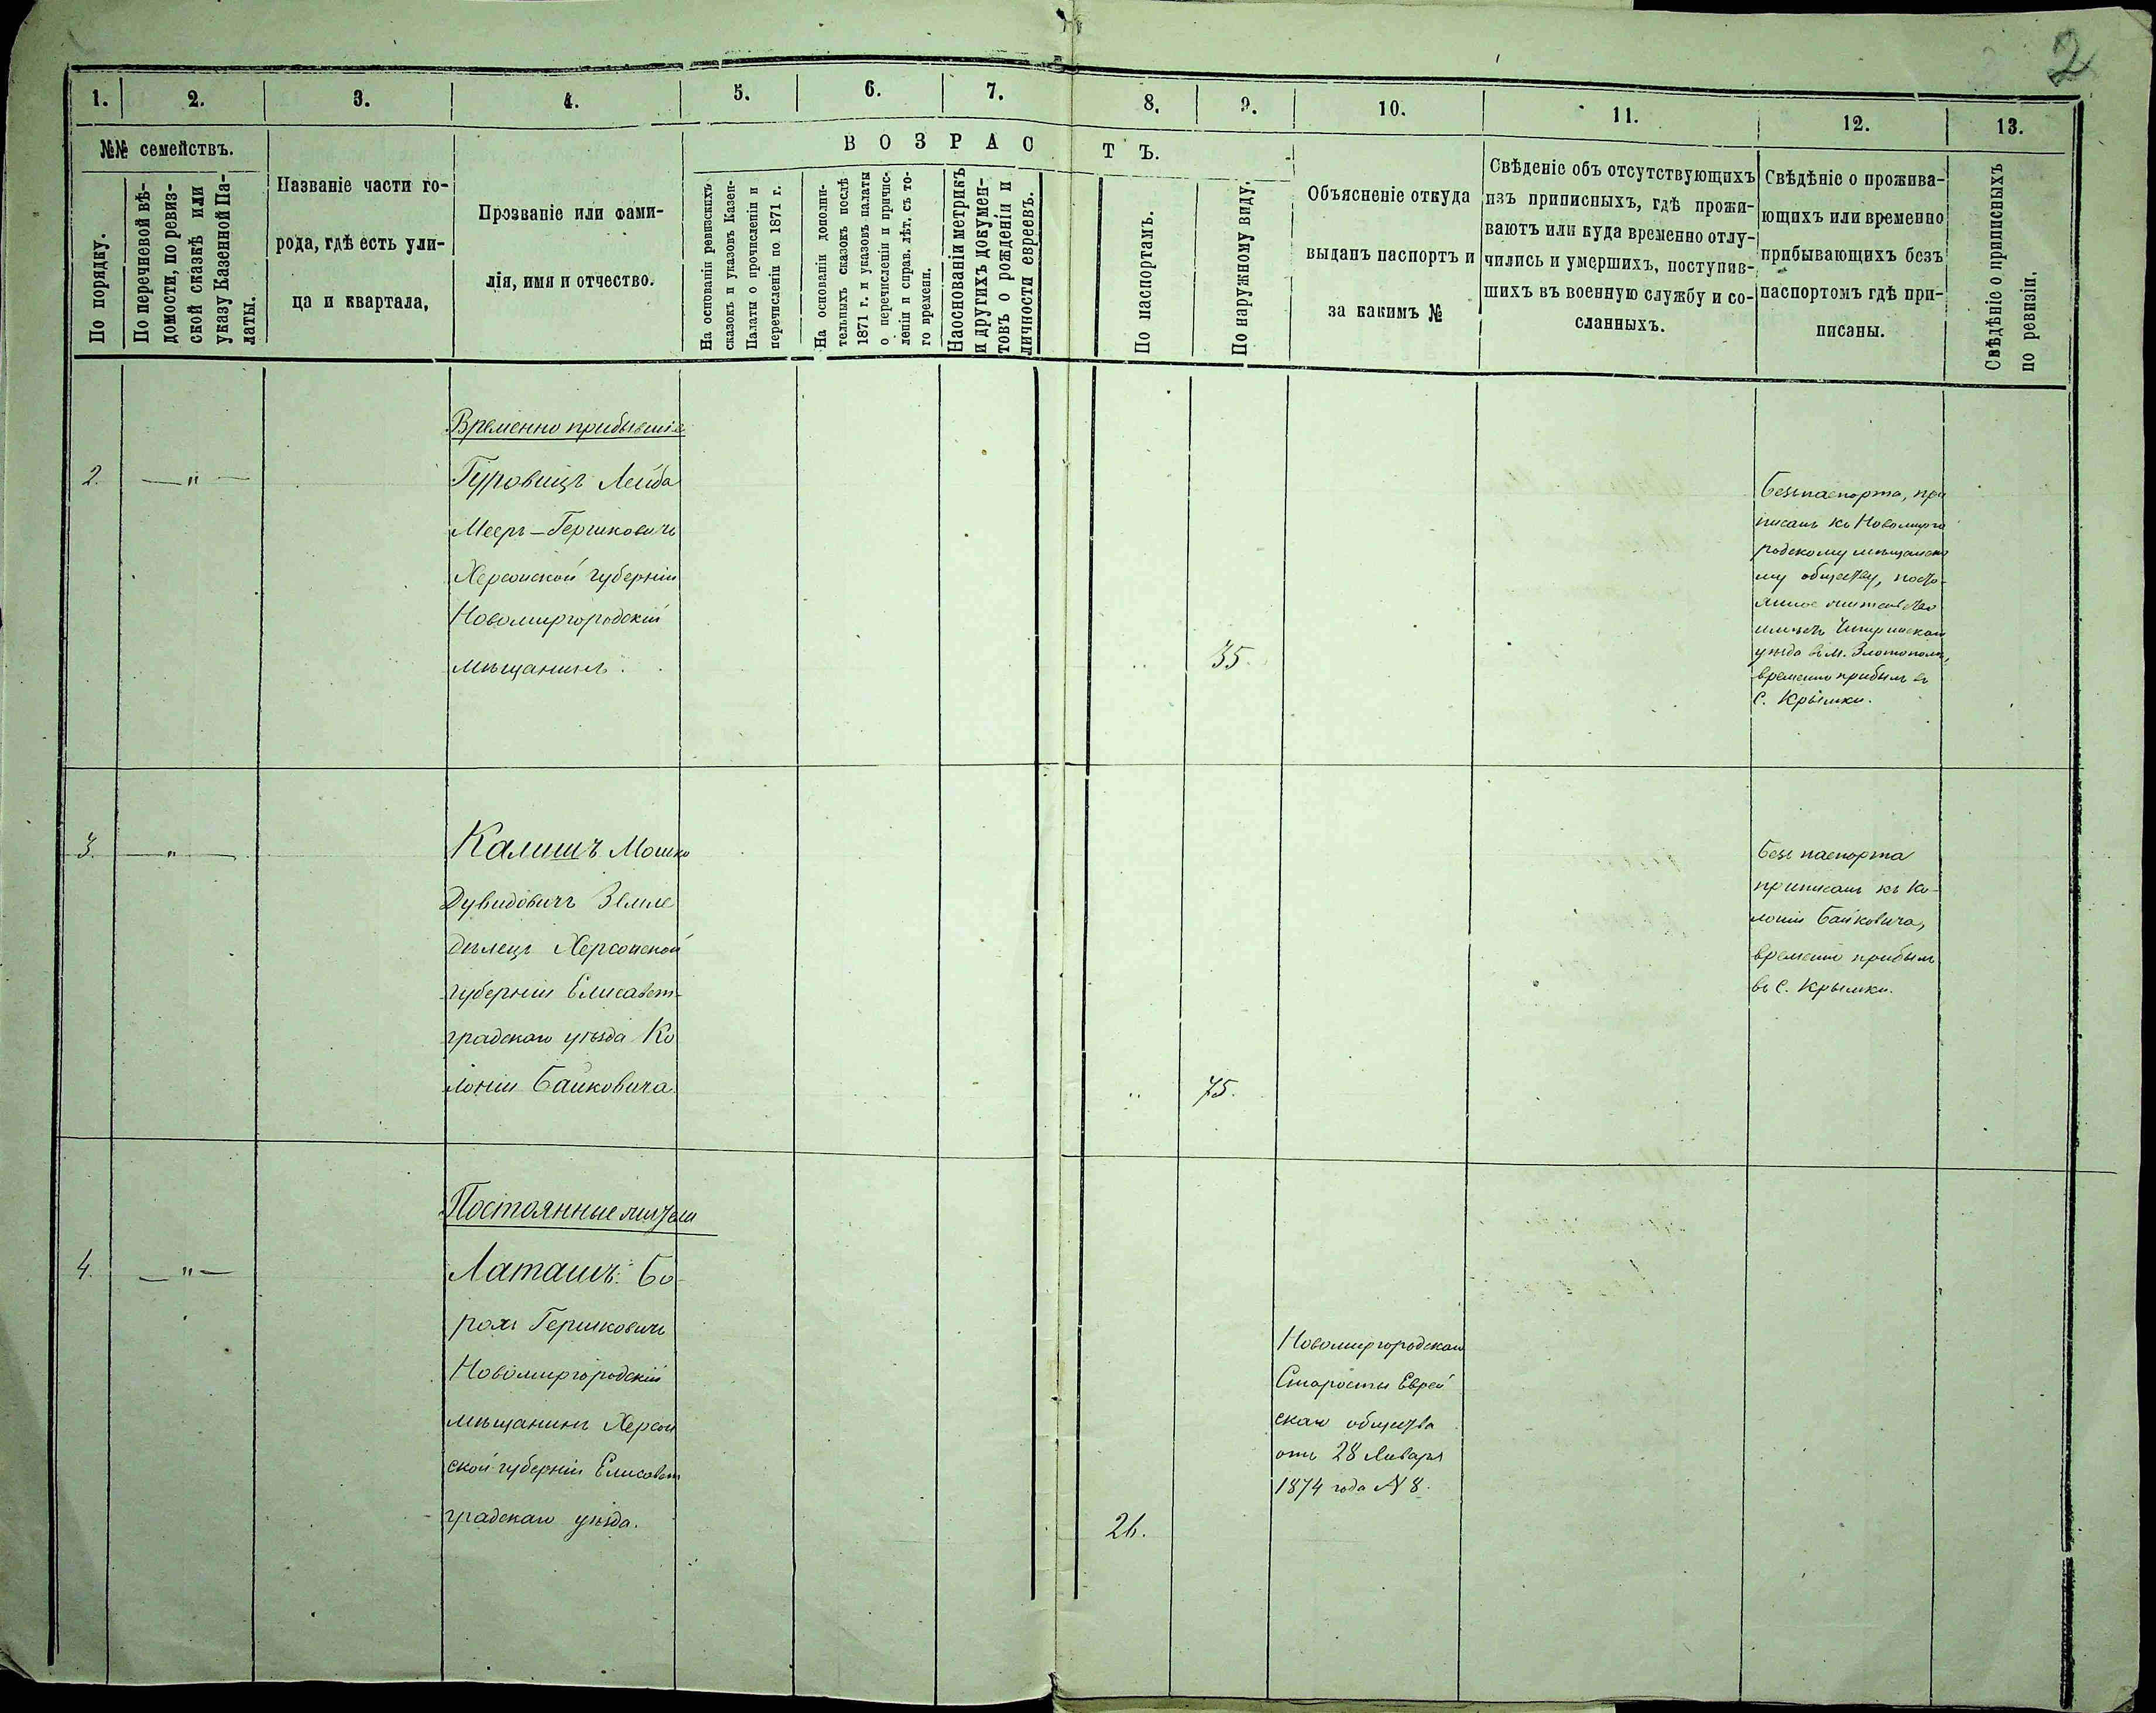 2
1. 2. 3. 4. 5. 6. 7. 8. 9. 10. 11. 12. 13.
№№ семействъ.
По порядку.
По перечневой вѣ-
домости, по ревиз-
ской сказкѣ или
указу Казенной Па-
латы.
Названіе части го-
рода, гдѣ есть ули-
ца и квартала,
Прозваніе или фами-
лія, имя и отчество.
ВОЗРАСТЪ.
На основаніи ревизскихъ
сказокъ и указовъ Казен-
Палаты о прочисленіи и
перечисленіи по 1871 г.
На основаніи дополни-
тельныхъ сказокъ послѣ
1871 г. и указовъ палаты
о перечисленіи и причис-
леніи и справ. лѣт. съ то-
го времени.
На основаніи метрикъ
и другихъ докумен-
товъ о рожденіи и
личности евреевъ.
По паспортамъ.
По наружному виду.
Объясненіе откуда
выданъ паспортъ и
за какимъ №
Свѣденіе объ отсутствующихъ
изъ приписныхъ, гдѣ прожи-
ваютъ или куда временно отлу-
чились и умершихъ, поступив-
шихъ въ военную службу и со-
сланныхъ.
Свѣдѣніе о прожива-
ющихъ или временно
прибывающихъ безъ
паспортомъ гдѣ при-
писаны.
Свѣдѣніе о приписныхъ
по ревизіи.
Временно прибывшіе
2. — " —
Гуровицъ Лейба
Мееръ-Гершковичъ
Херсонской губерніи
Новомиргородскій
мѣщанинъ.
" 35.
безъ паспорта, при
писанъ къ Новомирго
родскому мѣщанско
му обществу, посто-
янное жительство
имѣетъ Чигиринскаго
уѣзда въ м. Златополѣ,
временно прибылъ въ
с. Крымки.
3. — " —
Калишъ Мошко
Дувидовичъ Земле
дѣлецъ Херсонской
губерніи Елисавет-
градскаго уѣзда Ко
лоніи Байковича
" 75.
безъ паспорта
приписанъ къ Ко-
лоніи Байковича,
временно прибылъ
въ с. Крымки.
Постоянные жители
4. — " —
Латашъ Бо-
рохъ Гершковичъ
Новомиргородскій
мѣщанинъ Херсон
ской губерніи Елисавет
градскаго уѣзда.
26.
Новомиргородскаго
Старосты Еврей
скаго общества
отъ 28 Января
1874 года № 8.